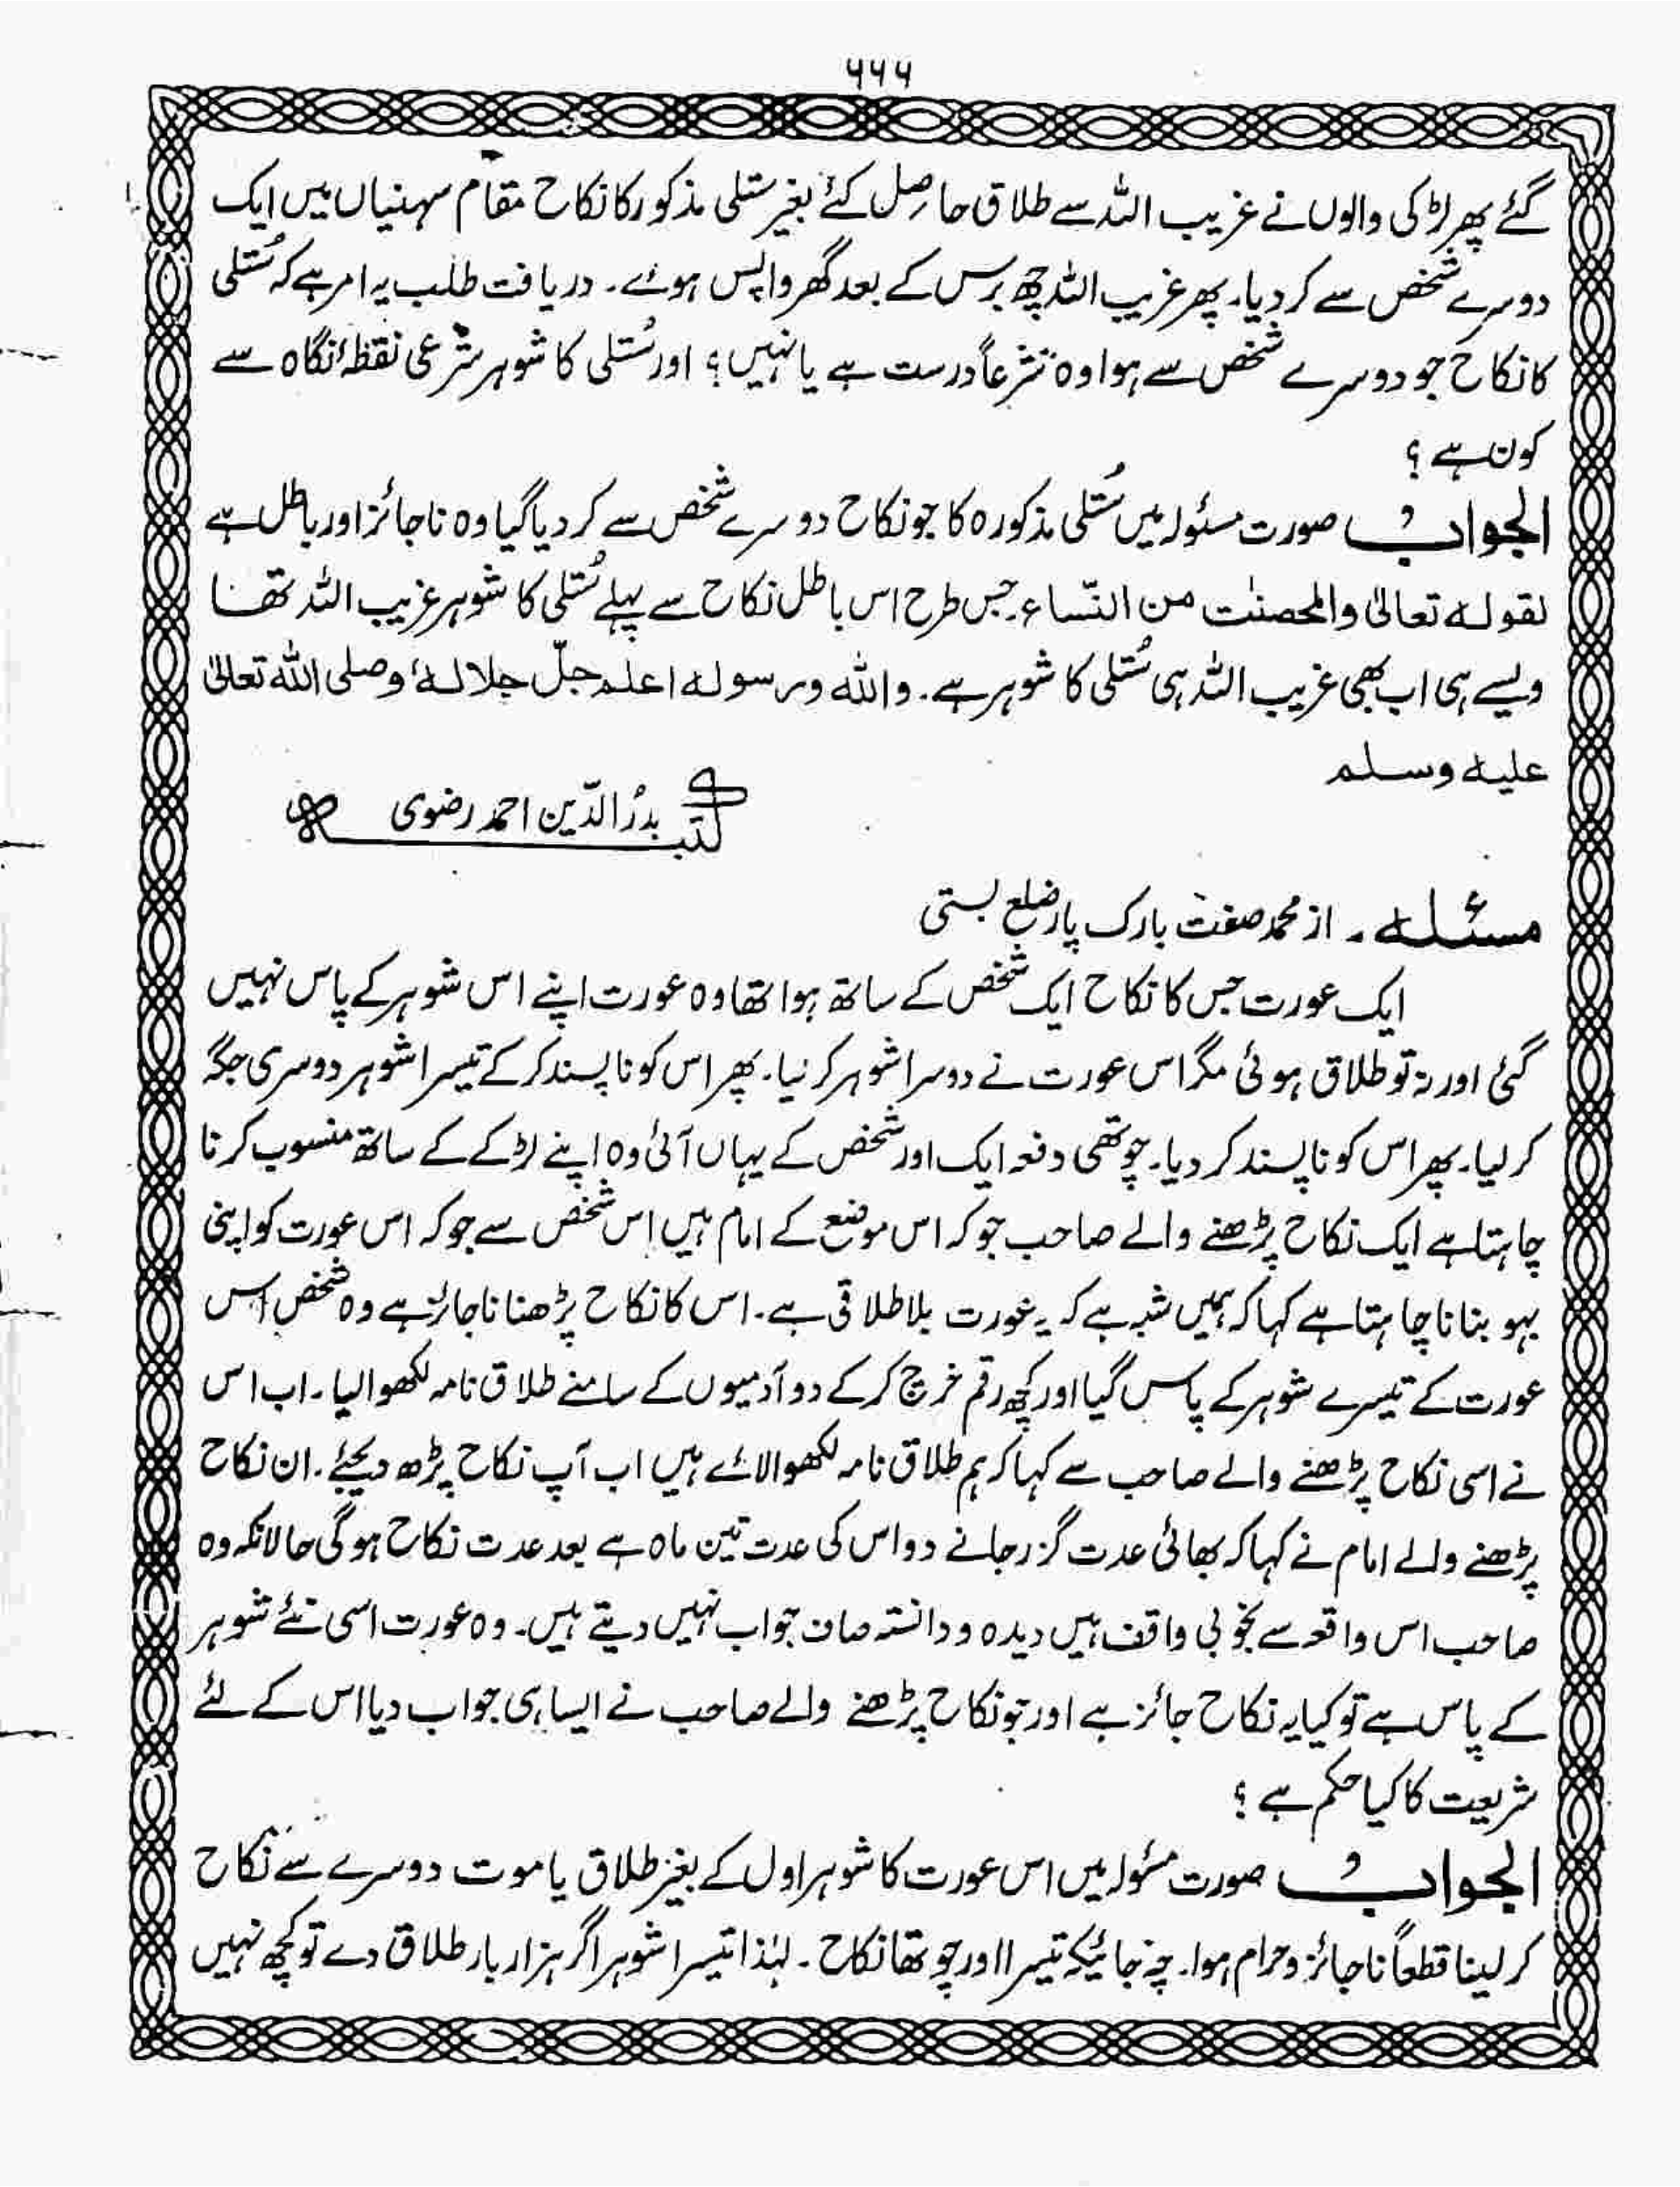 ۶۶۶
گئے پھر لڑکی والوں نے غریب اللہ سے طلاق حاصل کئے بغیر ستلی مذکور کا نکاح مقام سہنیاں میں ایک
دوسرے شخص سے کر دیا۔ پھر غریب اللہ چھ برس کے بعد گھر واپس ہوئے۔ دریافت طلب یہ امر ہے کہ سُتلی
کا نکاح جو دوسرے شخص سے ہوا وہ شرعاً درست ہے یا نہیں؟ اور سُتلی کا شوہر شرعی نقطۂ نگاہ سے
کون ہے؟
الجواب صورت مسئولہ میں سُتلی مذکورہ کا جو نکاح دوسرے شخص سے کر دیا گیا وہ ناجائز اور باطل ہے
لقولہ تعالیٰ والمحصنٰت من النّساء۔ جس طرح اس باطل نکاح سے پہلے سُتلی کا شوہر غریب اللہ تھا
ویسے ہی اب بھی غریب اللہ ہی سُتلی کا شوہر ہے۔ واللہ ورسولہ اعلم جلّ جلالہٗ وصلی اللہ تعالیٰ
علیہ وسلم
کتبہ بدرُ الدّین احمد رضوی
مسئلہ۔ از محمد صفت بارک پار ضلع بستی
ایک عورت جس کا نکاح ایک شخص کے ساتھ ہوا تھا وہ عورت اپنے اس شوہر کے پاس نہیں
گئی اور نہ تو طلاق ہوئی مگر اس عورت نے دوسرا شوہر کر لیا۔ پھر اس کو ناپسند کر کے تیسرا شوہر دوسری جگہ
کر لیا۔ پھر اس کو ناپسند کر دیا۔ چوتھی دفعہ ایک اور شخص کے یہاں آئی وہ اپنے لڑکے کے ساتھ منسوب کرنا
چاہتا ہے ایک نکاح پڑھنے والے صاحب جو کہ اس موضع کے امام ہیں اس شخص سے جو کہ اس عورت کو اپنی
بہو بنانا چاہتا ہے کہا کہ ہمیں شبہ ہے کہ یہ عورت بلا طلاقی ہے۔ اس کا نکاح پڑھنا ناجائز ہے وہ شخص اس
عورت کے تیسرے شوہر کے پاس گیا اور کچھ رقم خرچ کر کے دو آدمیوں کے سامنے طلاق نامہ لکھوا لیا۔ اب اس
نے اسی نکاح پڑھنے والے صاحب سے کہا کہ ہم طلاق نامہ لکھوا لائے ہیں اب آپ نکاح پڑھ دیجئے۔ ان نکاح
پڑھنے والے امام نے کہا کہ بھائی عدت گزر جانے دو اس کی عدت تین ماہ ہے بعد عدت نکاح ہوگی حالانکہ وہ
صاحب اس واقعہ سے بخوبی واقف ہیں دیدہ و دانستہ صاف جواب نہیں دیتے ہیں۔ وہ عورت اسی نئے شوہر
کے پاس ہے تو کیا یہ نکاح جائز ہے اور جو نکاح پڑھنے والے صاحب نے ایسا ہی جواب دیا اس کے لئے
شریعت کا کیا حکم ہے؟
الجواب صورت مسئولہ میں اس عورت کا شوہر اول کے بغیر طلاق یا موت دوسرے سے نکاح
کر لینا قطعاً ناجائز و حرام ہوا۔ چہ جائیکہ تیسرا اور چوتھا نکاح۔ لہٰذا تیسرا شوہر اگر ہزار بار طلاق دے تو کچھ نہیں